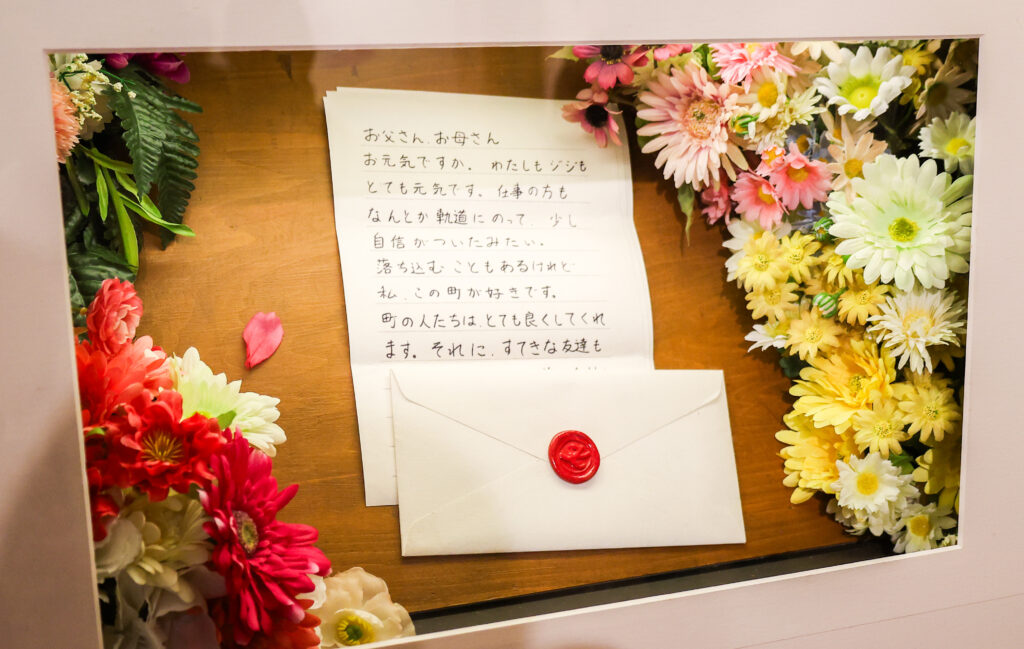 お父さん、お母さん
お元気ですか。わたしもジジも
とても元気です。仕事の方も
なんとか軌道にのって、少し
自信がついたみたい。
落ち込むこともあるけれど
私、この町が好きです。
町の人たちは、とても良くしてくれ
ます。それに、すてきな友達も